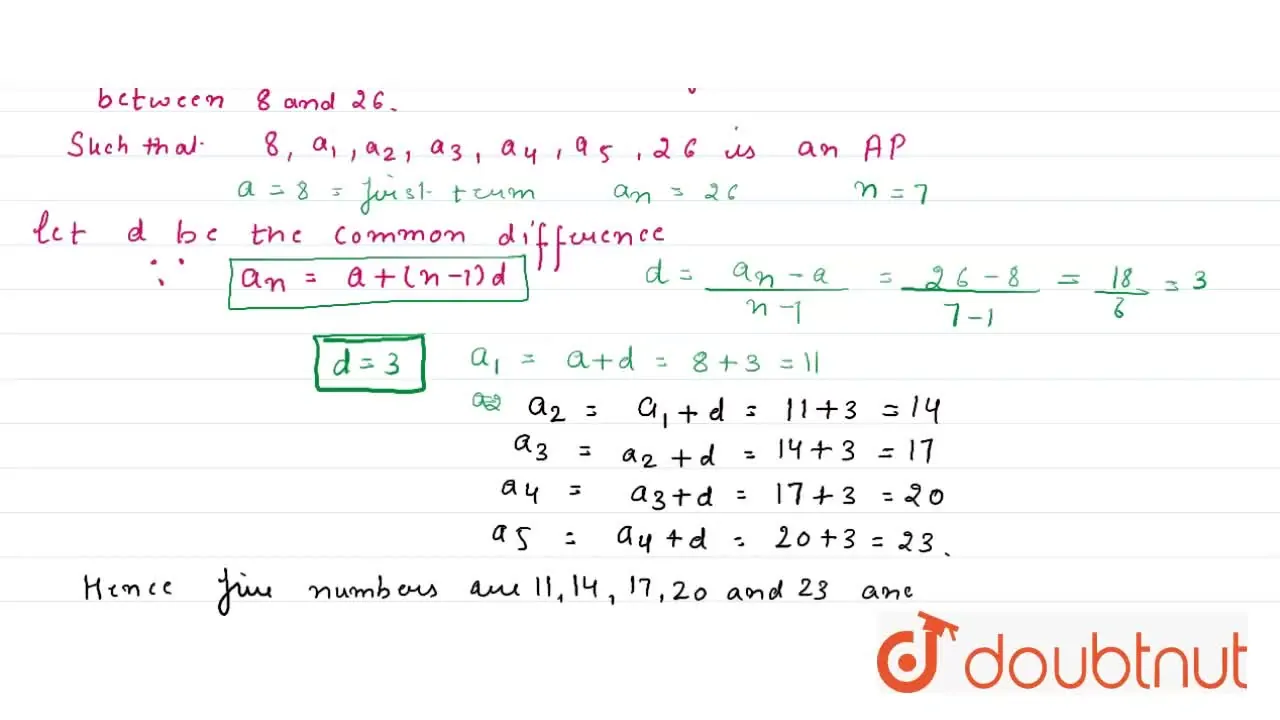 between 8 and 26.
Such that 8, a1, a2, a3, a4, a5, 26 is an AP
a = 8 = first term an = 26 n = 7
Let d be the common difference
∵ an = a + (n-1)d d = an - a / n - 1 = 26 - 8 / 7 - 1 = 18 / 6 = 3
d = 3 a1 = a + d = 8 + 3 = 11
a2 a2 = a1 + d = 11 + 3 = 14
a3 = a2 + d = 14 + 3 = 17
a4 = a3 + d = 17 + 3 = 20
a5 = a4 + d = 20 + 3 = 23.
Hence five numbers are 11, 14, 17, 20 and 23 ane
doubtnut